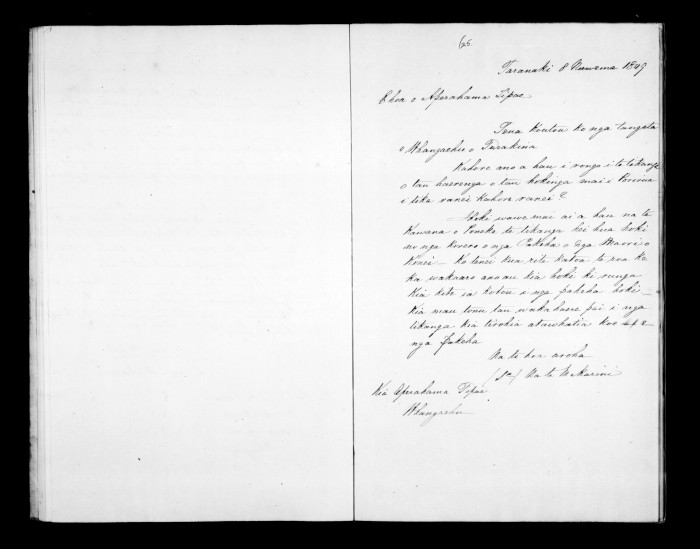 65
Taranaki 8 Nowema 1849
E hoa e Aperahama Tipae
Tena koutou ko nga tangata
o Whangaehu o Turakina
Kahore ano a hau i rongo i te tikanga
o tau haerenga o tau hokinga mai i Porirua
i tika ranei kahore ranei?
Hoki wawe mai ai a hau na te
Kawana o Poneke te tikanga hei hua hoki
mo nga korero o nga Pakeha o nga Maori o
Konei _ Ko tenei kua rite katoa te roa ke
ka wakaaro ano au kia hoki ki runga
kia kite ia koutou i nga pakeha hoki _
kia mau tonu tau wakahaere pai i nga
tikanga kia tirohia atawhaitia koe e
nga pakeha
Na to hoa aroha
Na te Makarini
Kia Aperahama Tipae
Whangaehu